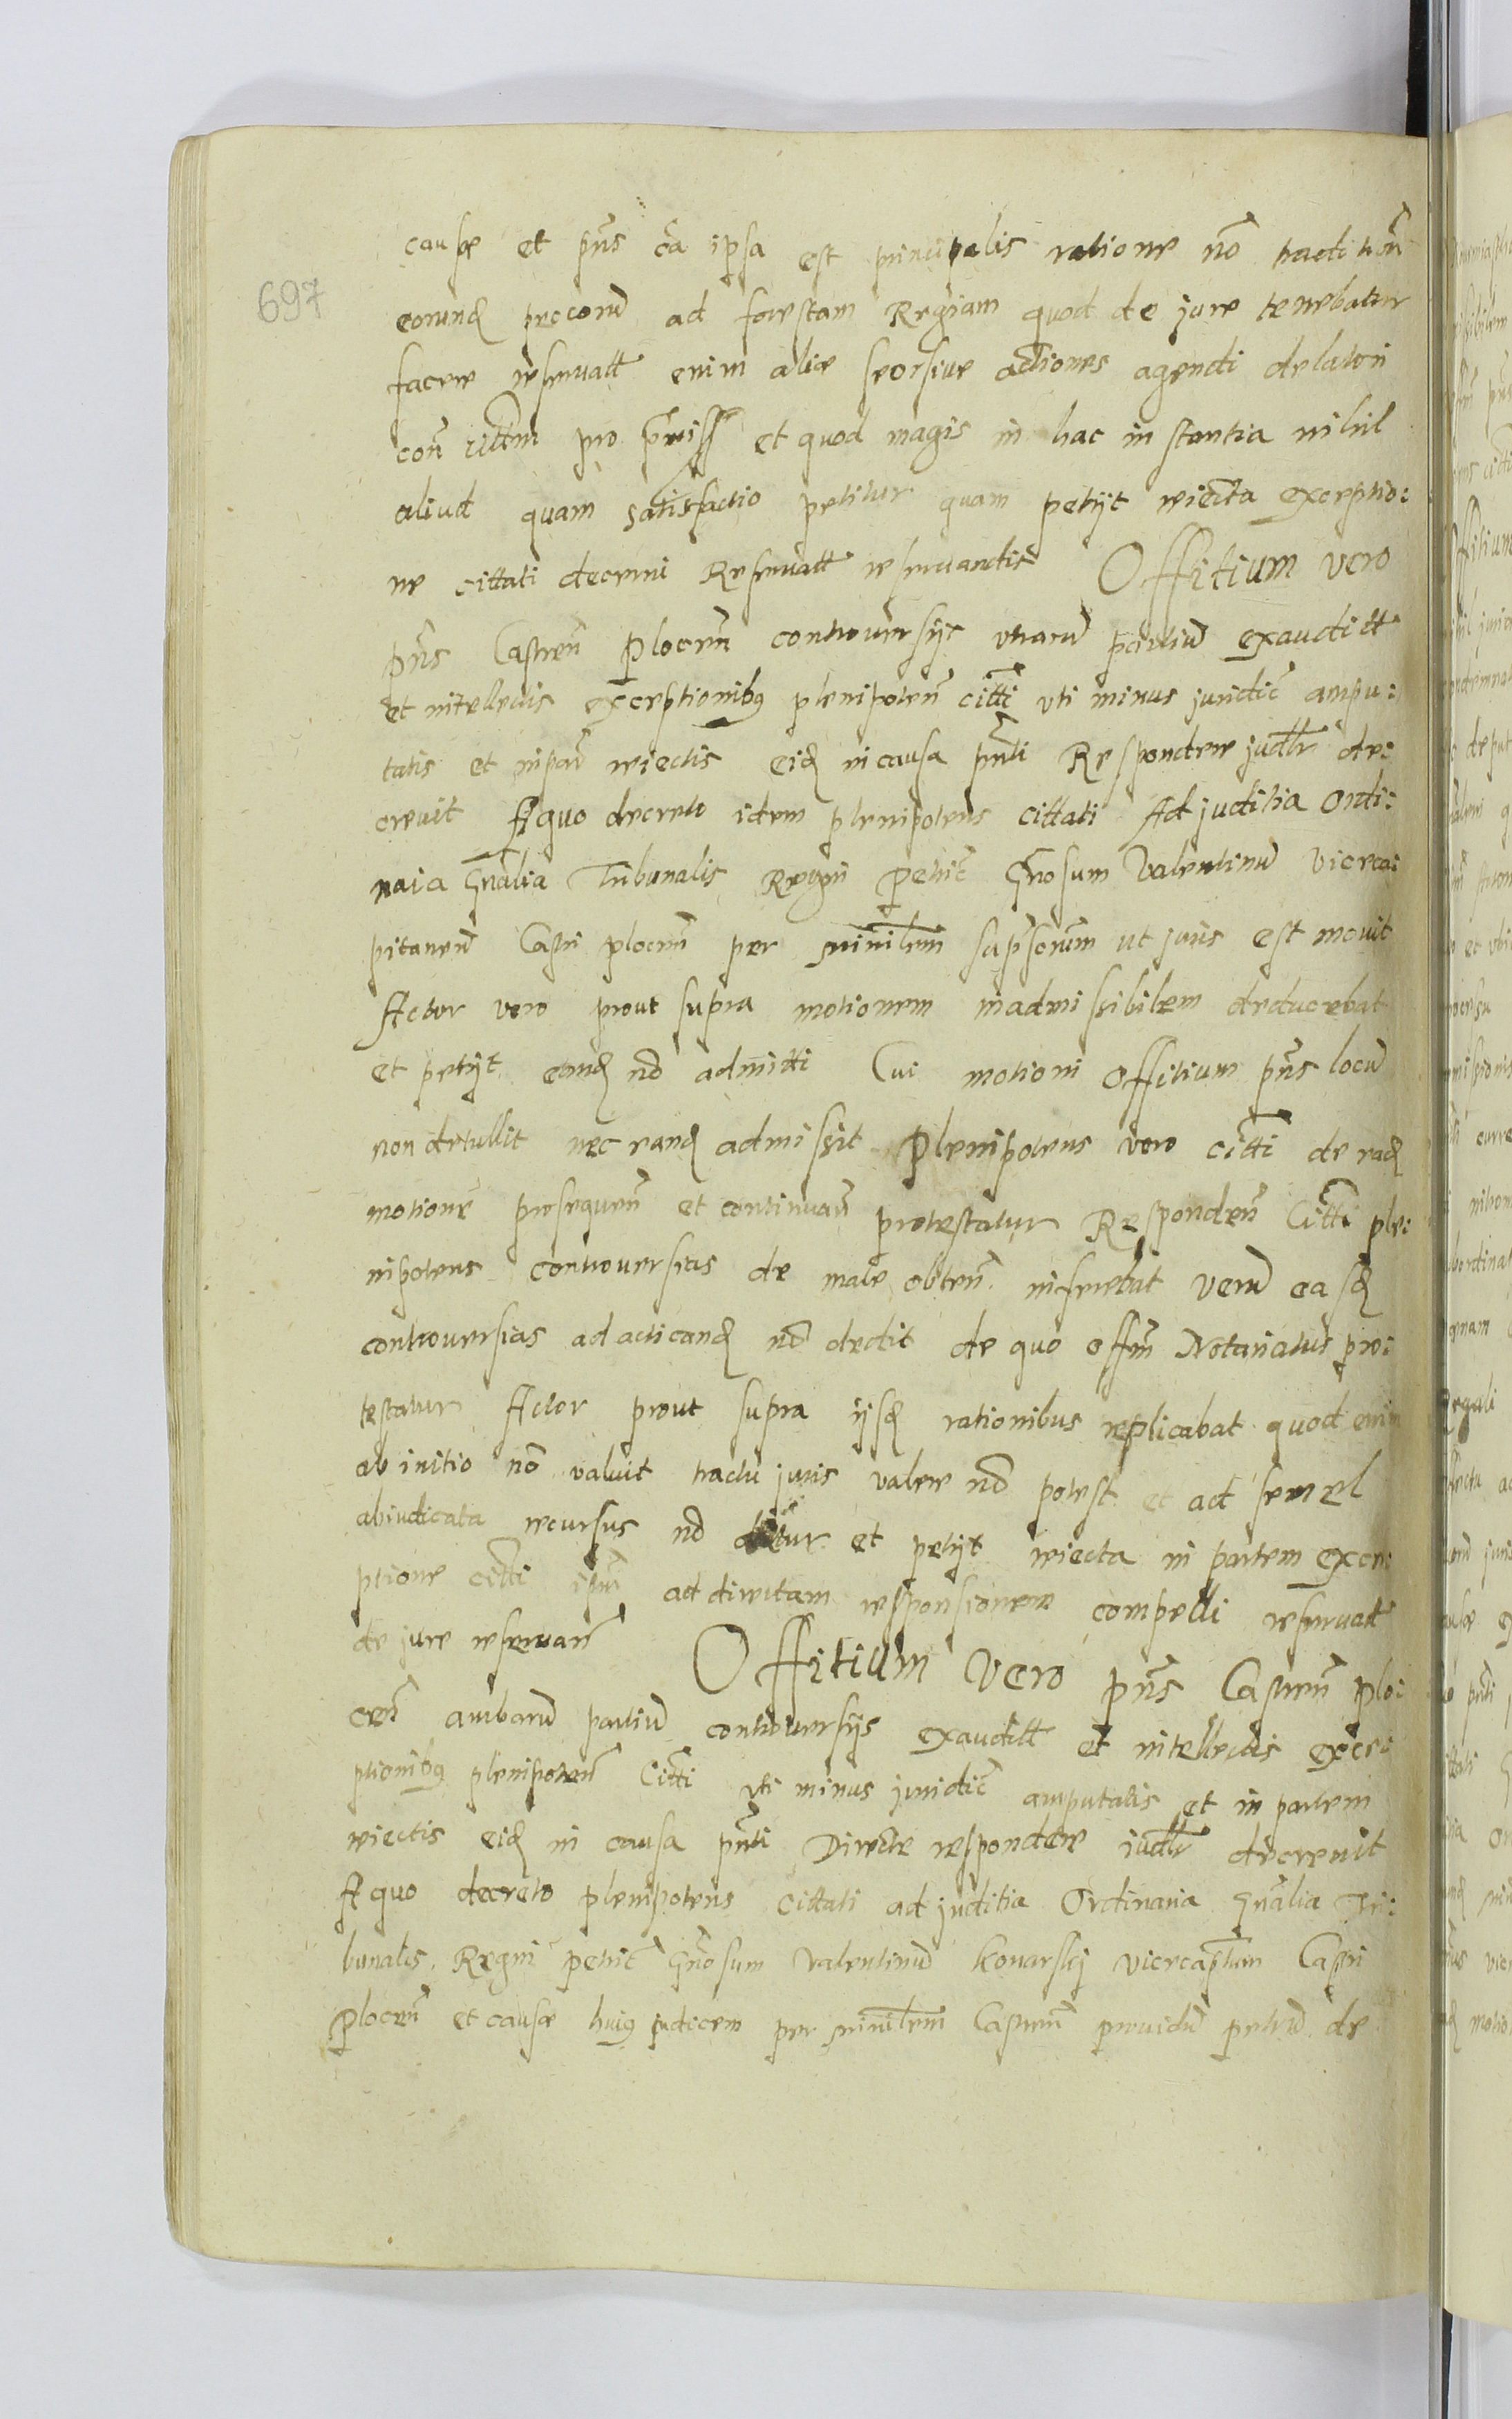 697
causæ et pn̄s cā ipsa est principalis ratione nō tradition̄
eorund pecorū ad forestam Regiam quod de jure tenebatur
facere reseruatt enim aliæ seorsiue actiones agendi delatori
con̄ citt̄m pro p̄miss et quod magis in hac instantia nihil
aliud quam satisfactio petitur quam petijt reiecta exceptio:
ne cittati decerni Reseruatt reseruandis Offitium vero
pn̄s Castren̄ Plocen̄ controuersijs vtrarū partiū exauditt
et intellectis exceptionibq plenipoten̄ citt̄i vti minus juridic̄ ampu:
tatis et in par̄ reiectis eid in causa pn̄ti Respondere judltr de:
creuit A quo decreto idem plenipotens cittati Ad juditia Ordi:
naia Gn̄alia Tribunalis Regni petric̄ Gn̄osum Valentinū Viceca:
pitaneū Castri plocen̄ per ministlem̄ sup̄scrum ut juris est mouit
Actor vero prout supra motionem inadmissibilem deducebat
et petijt eand nō admitti Cui motioni Offitium pn̄s locū
non detullit nec eand admissit Plenipotens vero citt̄i de ead
motione prosequen̄ et continuan̄ protestatur Responden̄ Citt̄i ple:
nipotens controuersias de male obten̄ inferebat verū easd
controuersias ad acticand nō dedit de quo offm̄ Notariatus pro:
testatur Actor prout supra ijsd rationibus replicabat quod enim
ab initio nō valuit tractu juris valere nō potest et ad semel
abiudicata recursus nō datur et petijt reiecta in partem exce:
ptione citti ipm̄ ad directam responsionem compelli reseruatt
de jure reseruan̄ Offitium vero pn̄s Castren̄ Plo:
cen̄ ambarū partiū controuersijs exauditt et intellectis exce:
ptionibq plenipoten̄ Citt̄i vti minus juridic̄ amputatis et in partem
reiectis eid in causa pn̄ti Directe respondere iudltr decreuit
A quo decreto plenipotens cittati ad juditia Ordinaria Gn̄alia Tri:
bunalis Regni petric̄ Gn̄osum Valentinū Kouarskj vicecaptum Castri
Plocen̄ et causæ huiq judicem per ministlem̄ Castren̄ prouidū petrū de